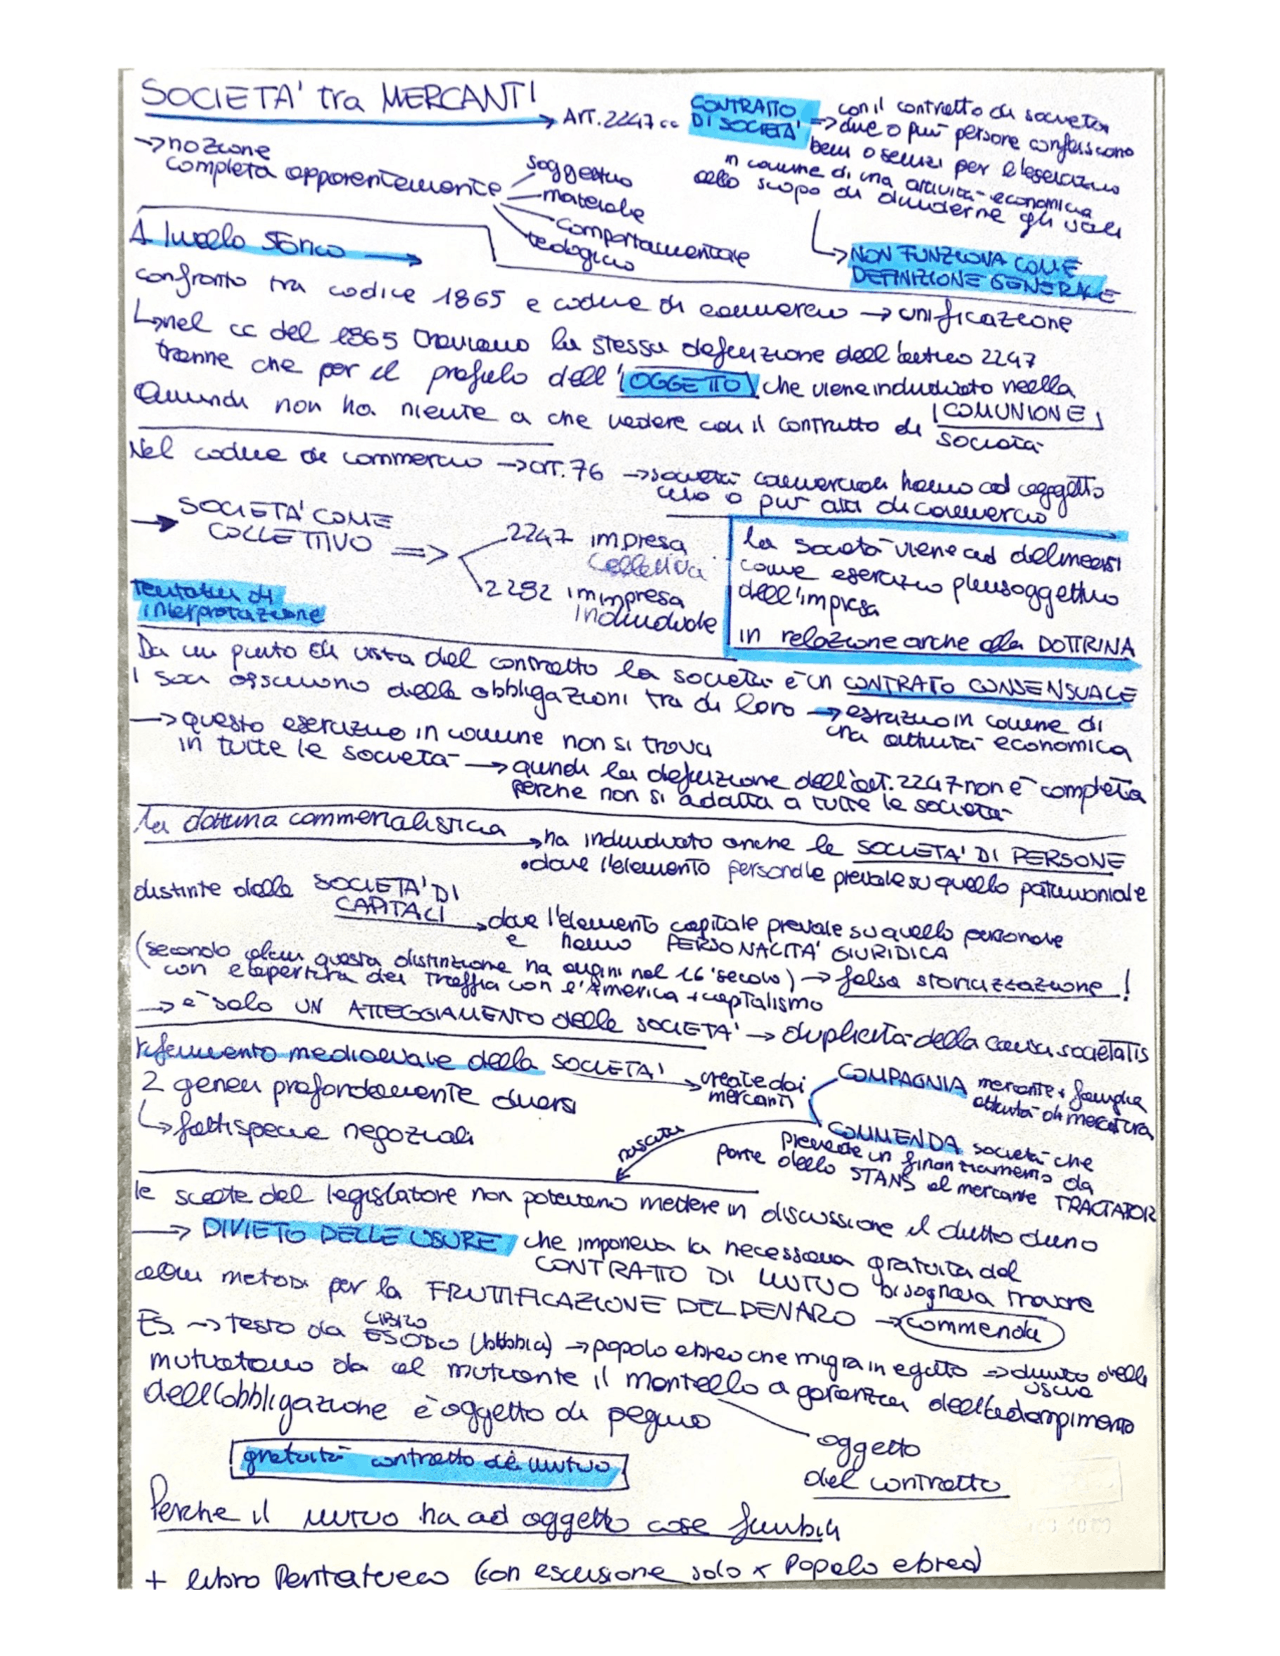 SOCIETA' tra MERCANTI
→ ART. 2247 cc
CONTRATTO DI SOCIETA'
→ con il contratto di società
due o più persone conferiscono
beni o servizi per l'esercizio
in comune di una attività economica
allo scopo di dividerne gli utili
→ NON FUNZIONA COME
DEFINIZIONE GENERALE
→ nozione
completa apparentemente
soggettivo
materiale
comportamentale
teologico
A livello storico →
confronto tra codice 1865 e codice di commercio → unificazione
↳ nel cc del 1865 troviamo la stessa definizione dell'antico 2247
tranne che per il profilo dell'OGGETTO che viene individuato nella
COMUNIONE
Quindi non ha niente a che vedere con il contratto di società
Nel codice di commercio → art. 76 → società commerciali hanno ad oggetto
uno o più atti di commercio
→ SOCIETA' COME
COLLETTIVO ⇒
2247 impresa
collettiva
2282 imimpresa
individuale
la società viene ad delinearsi
come esercizio plurisoggettivo
dell'impresa
in relazione anche alla DOTTRINA
Tentativi di
interpretazione
Da un punto di vista del contratto la società è un CONTRATO CONSENSUALE
I soci assumono delle obbligazioni tra di loro → esercizio in comune di
una attività economica
→ questo esercizio in comune non si trova
in tutte le società → quindi la definizione dell'art. 2247 non è completa
perche non si adatta a tutte le società
La dottrina commercialistica → ha individuato anche le SOCIETA' DI PERSONE
• dove l'elemento personale prevale su quello patrimoniale
distinte dalle SOCIETA' DI
CAPITALI → dove l'elemento capitale prevale su quello personale
e hanno PERSONALITA' GIURIDICA
(secondo alcuni questa distinzione ha origini nel 16° secolo) → falsa storicizzazione!
con l'apertura dei traffici con l'America + capitalismo
→ è solo UN ATTEGGIAMENTO delle SOCIETA' → duplicità della causa societatis
riferimento medioevale della SOCIETA' → create dai
mercanti
COMPAGNIA mercante + famiglia
attività di mercatura
COMMENDA società che
prevede un finanziamento da
parte dello STANS al mercante TRACTATOR
2 generi profondamente diversi
↳ fattispecie negoziali
nascita
le scelte del legislatore non potevano mettere in discussione il diritto divino
→ DIVIETO DELLE USURE che imponeva la necessaria gratuità del
CONTRATTO DI MUTUO bisognava trovare
altri metodi per la FRUTTIFICAZIONE DEL DENARO → commenda
Es. → testo da LIBRO
ESODO (bibbia) → popolo ebreo che migra in egitto → divieto delle
usure
mutuatario da al mutuante il mantello a garanzia dell'adempimento
dell'obbligazione è oggetto di pegno
oggetto
del contratto
gratuità contratto di mutuo
Perche il mutuo ha ad oggetto cose fungibili
+ libro Pentateuco (con esclusione solo x Popolo ebreo)